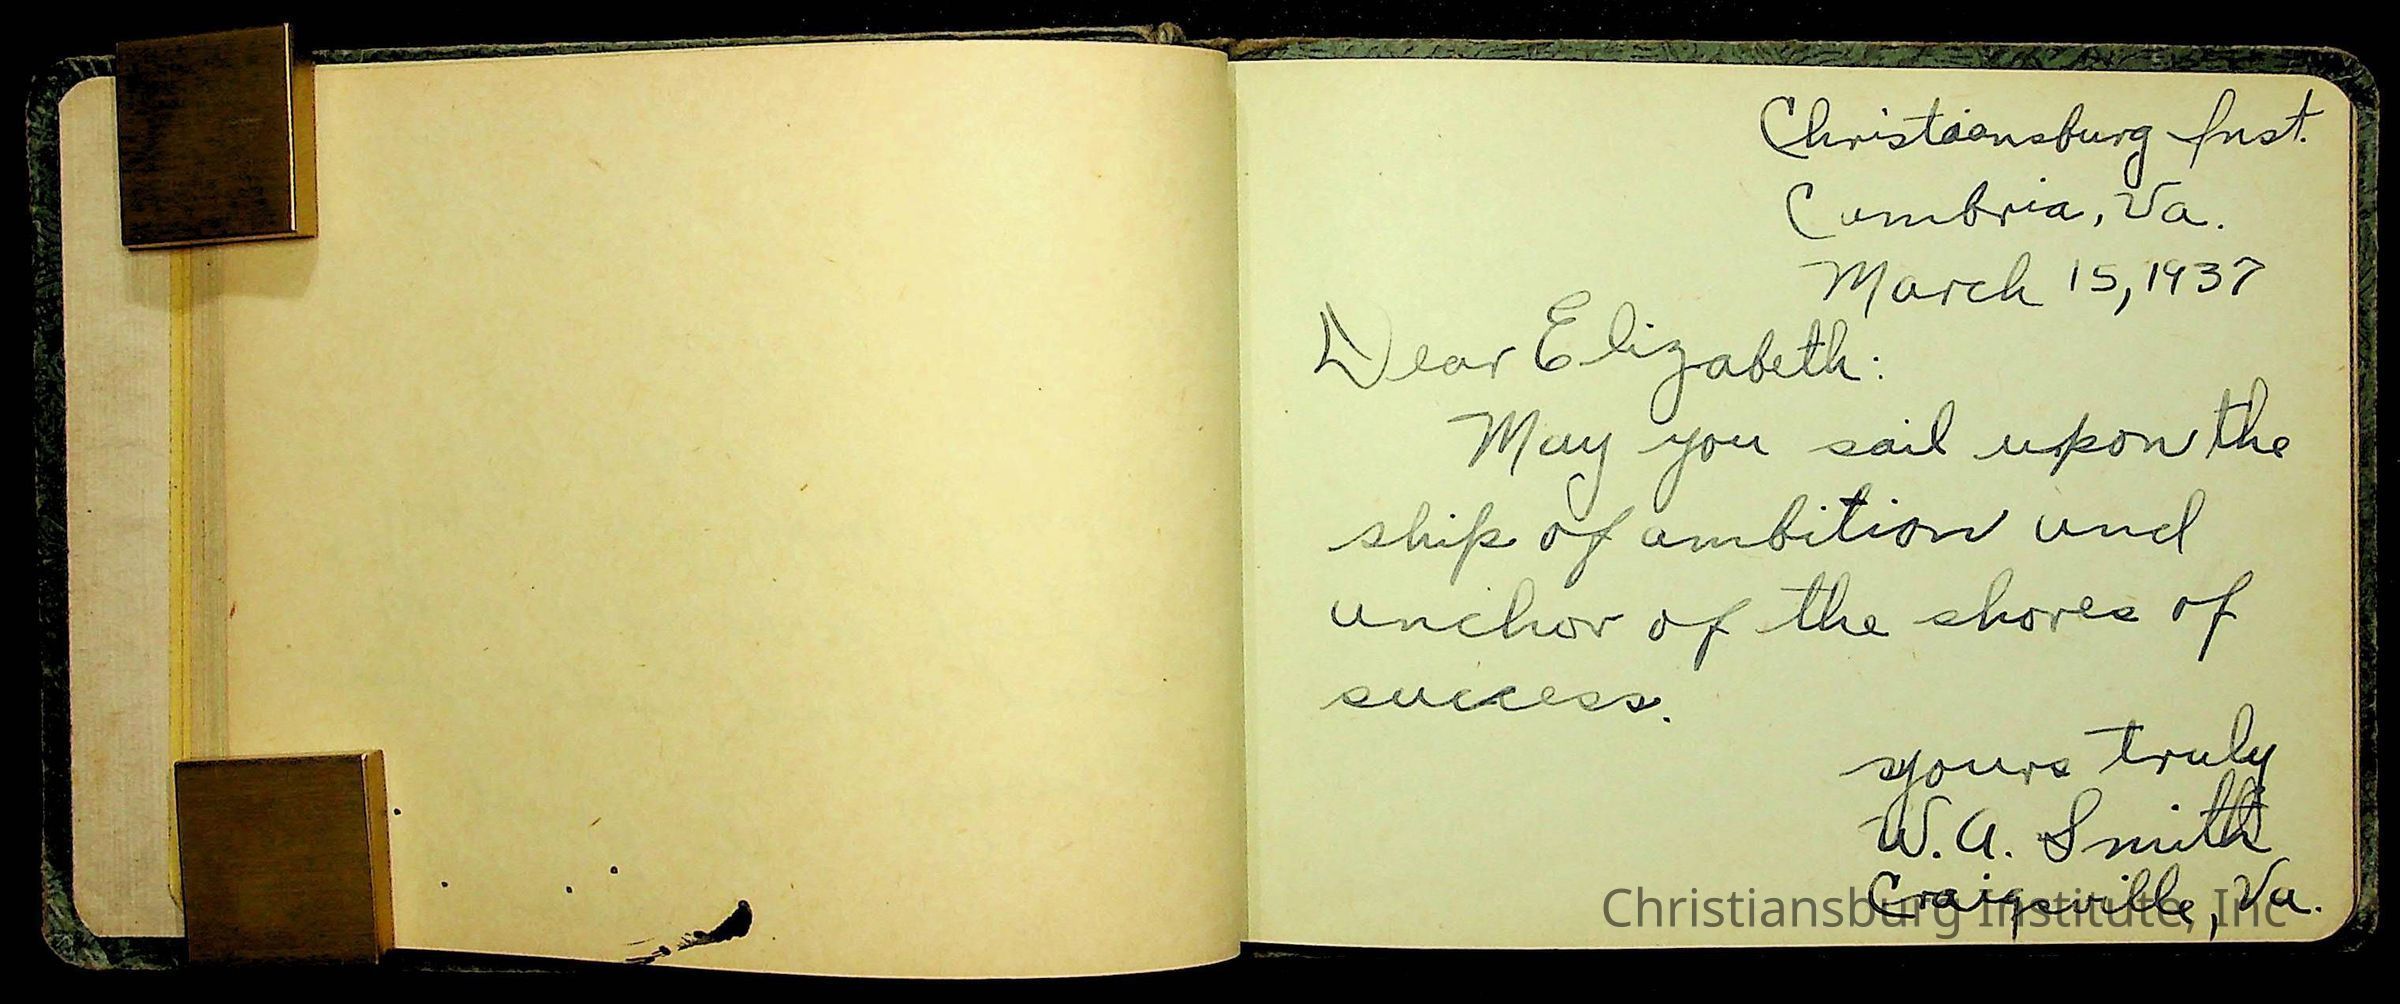 Christiansburg Inst.
Cambria, Va.
March 15, 1937
Dear Elizabeth:
May you sail upon the
ship of ambition and
anchor of the shores of
success.
yours truly
W. A. Smith
Craigsville, Va.
Christiansburg Institute, Inc